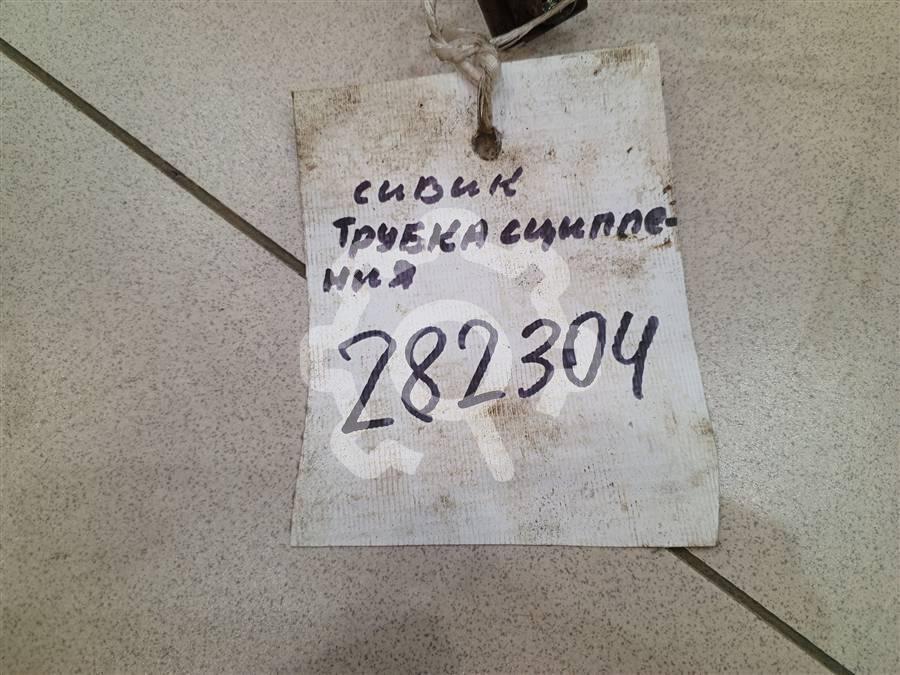 сивик
Трубка сциппе-
ния
282304